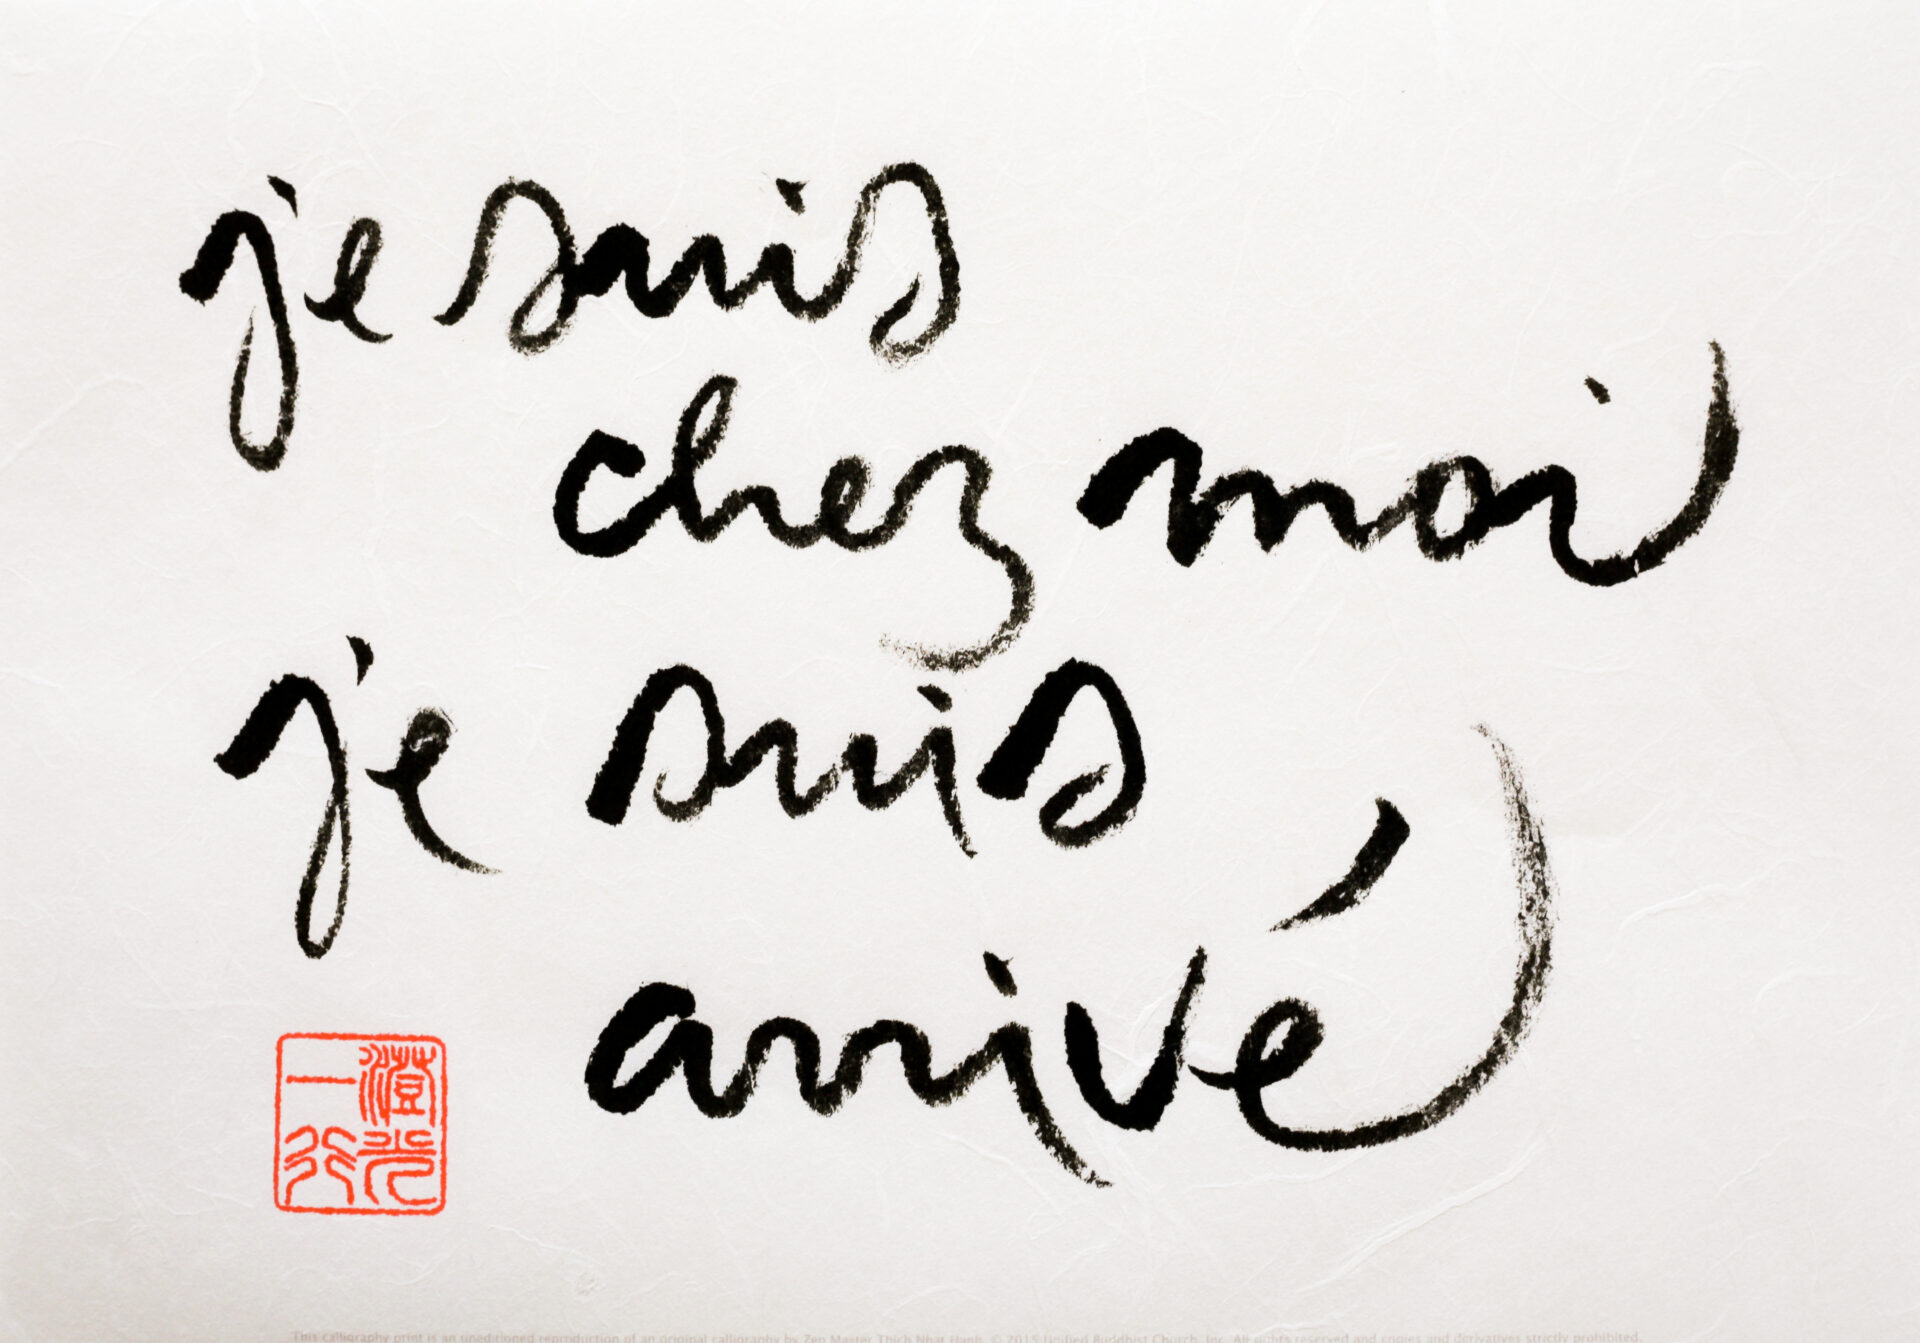 je suis
chez moi
je suis
arrivé
澄光
一行
This calligraphy print is an uneditioned reproduction of an original calligraphy by Zen Master Thich Nhat Hanh. © 2015 Unified Buddhist Church, Inc. All rights reserved and copies and derivatives strictly prohibited.